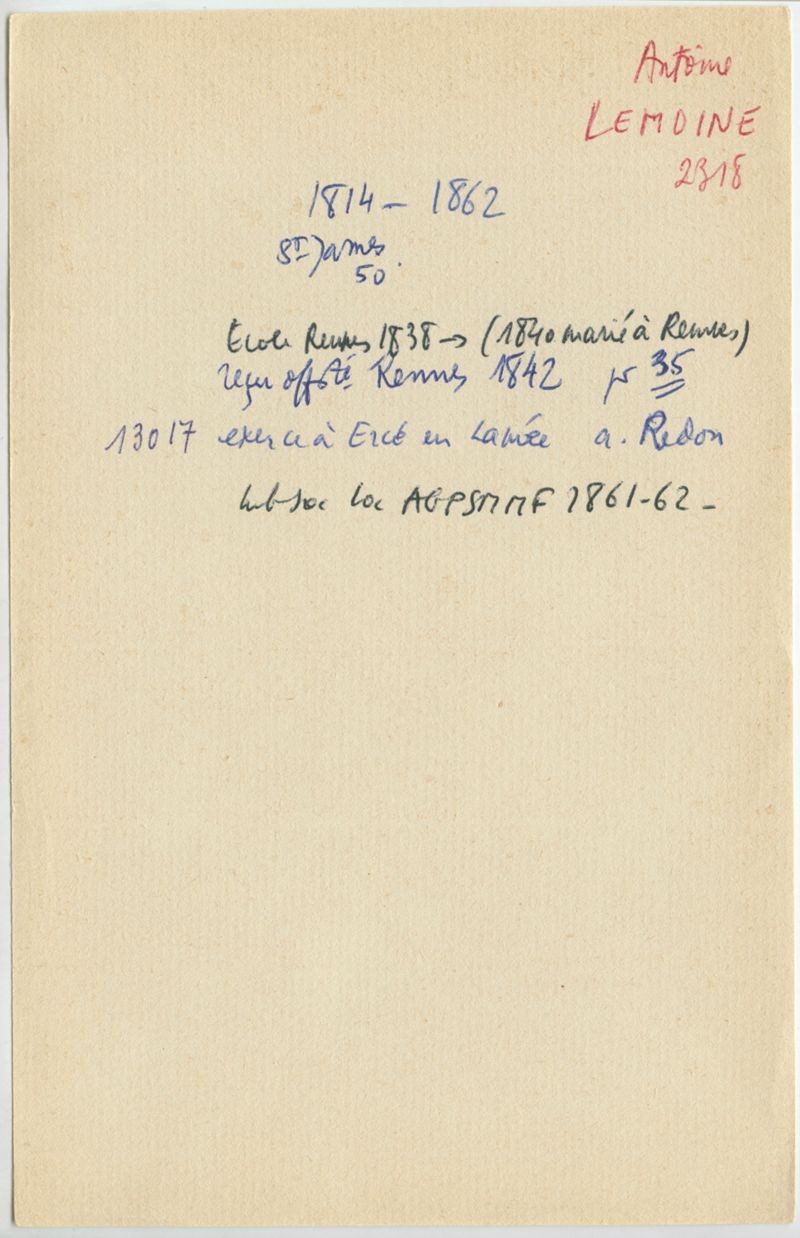 Antoine
LEMOINE
2318
1814 – 1862
St James
50.
Ecole Rennes 1838 → (1840 marié à Rennes)
reçu offsté Rennes 1842 pr 35
13017 exerce à Ercé en Lamée a. Redon
loc AGPSMMF 1861-62 –